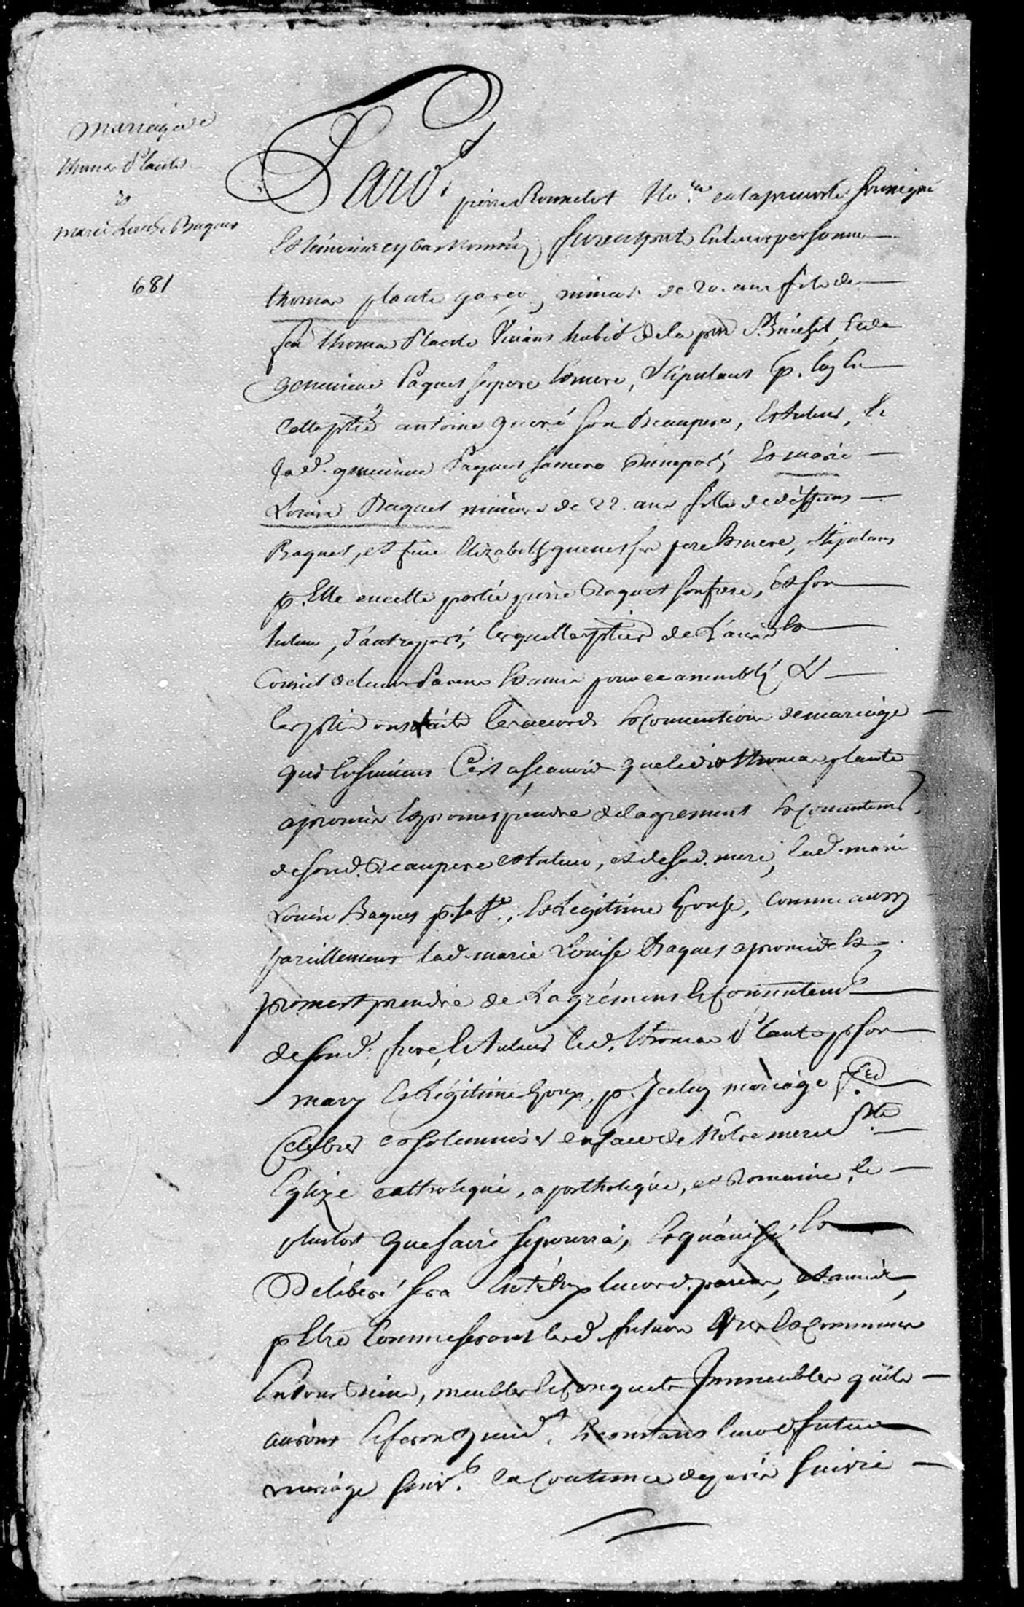 Mariage de
Thoma Plante
&
Marie Louise Baquet
681
Pard.t pierre Rennelot No.re en la prevosté soussigné
Et témoins cy bas nommés furent present en leurs personnes
thomas plante garçon mineur de 20. ans fils de
feu thoma Plante vivant habit de la p.sse St Michel, Et de
genevieve Paquet ses pere Et mere, Stipulant p. luy En
Cette ptie antoine son Beaupere, Et tuteur, Et
lad. genevieve Paquet sa mere d'une part, Et marie
Louise Baquet mineure de 22. ans fille de deffunt
Baquet, et feue Elizabeth ses pere Et mere, stipulant
p. Elle en cette partie Baquet son frere, Et son
tuteur, d'autre part, lesquelles pties de L'avis Et
Conseil de leurs Parens Et amis pour ce assemblés
les pties ont fait les accords Et Conventions de mariage
qui Ensuivent C'est ascavoir que ledit thomas plante
a promis Et promet prendre de lagrement Et Consentement
de son d. Beaupere et tuteur, et de sad. mere, lad. marie
Louise Baquet p. sa f.e, Et Legitime Epouse, comme aussy
pareillement lad. marie Louise Baquet a promis Et
promet prendre de L'agrément Et Consentement
de sond. frere, Et tuteur led. Thomas Plante p. son
mary Et Légitime Epoux, p. Iceluy mariage
Celebrer et solemniser en face de Notre mere Ste
Eglize catholique, apostholique, et Romaine, le
plustot que faire se pourra, Et qu'avisé Et
Déliberé sera Entr'eux leurs d. parens, et amis,
p. Etre Commes seront lesd. futurs Uns Et Communs
En tous Biens, meubles Et Conquets Immeubles qu'ils
auront Et feront pend.t Et constant leurd. futur
mariage suiv.t la Coutume de paris suivie